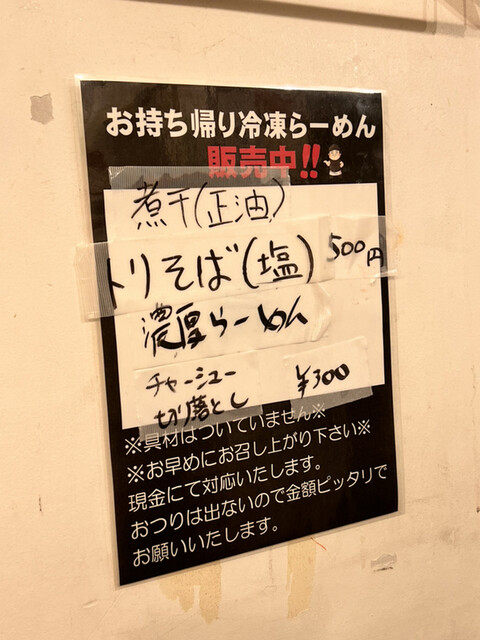 お持ち帰り冷凍らーめん
販売中!!
煮干(正油)
トリそば(塩) 500円
濃厚らーめん
チャーシュー
切り落とし ¥300
※具材はついていません※
※お早めにお召し上がり下さい※
現金にて対応いたします。
おつりは出ないので金額ピッタリで
お願いいたします。